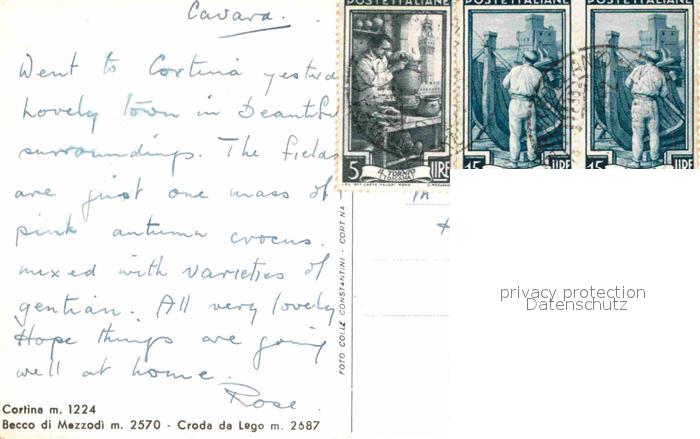 Cavara.
Went to Cortina yesterda
Lovely town in beautiful
surroundings. The fields
are just one mass of
pink autumn crocus.
mixed with varieties of
gentian. All very lovely
Hope things are going
well at home.
Rose.
Cortina m. 1224
Becco di Mezzodì m. 2570 - Croda da Lego m. 2687
FOTO COLLE CONSTANTINI - CORTINA
POSTE ITALIANE
5 LIRE
IL TORNIO
(TOSCANA)
POSTE ITALIANE
15 LIRE
POSTE ITALIANE
15 LIRE
privacy protection
Datenschutz